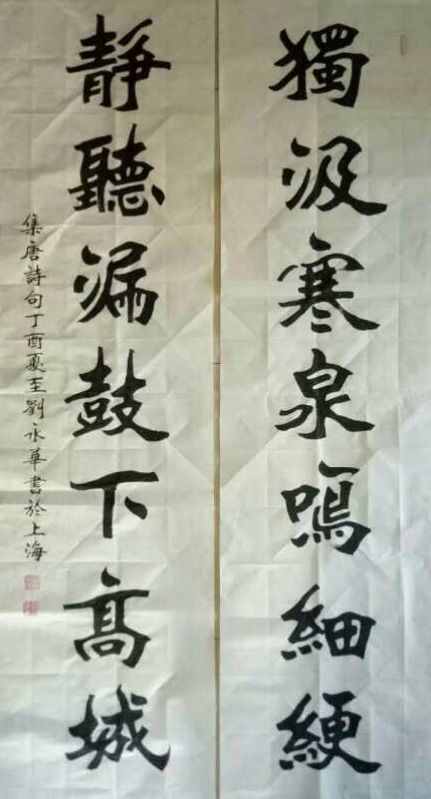 獨汲寒泉鳴細綆
靜聽漏鼓下高城
集唐詩句丁酉夏至劉永華書於上海